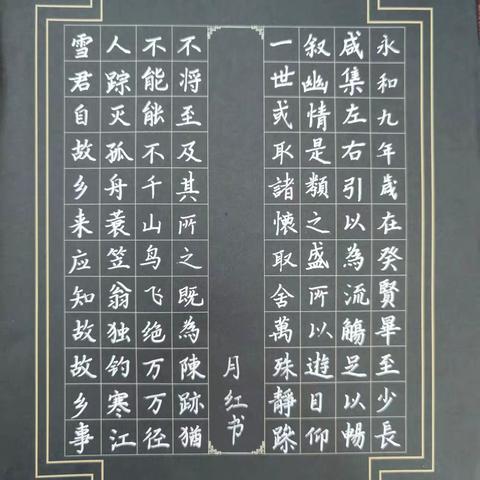 永和九年歲在癸賢畢至少長
咸集左右引以為流觴足以暢
叙幽情是類之盛所以遊目仰
一世或取諸懷取舍萬殊靜躁
月红书
不将至及其所之既為陳跡猶
不能能不千山鸟飞绝万万径
人踪灭孤舟蓑笠翁独钓寒江
雪君自故乡来应知故故乡事